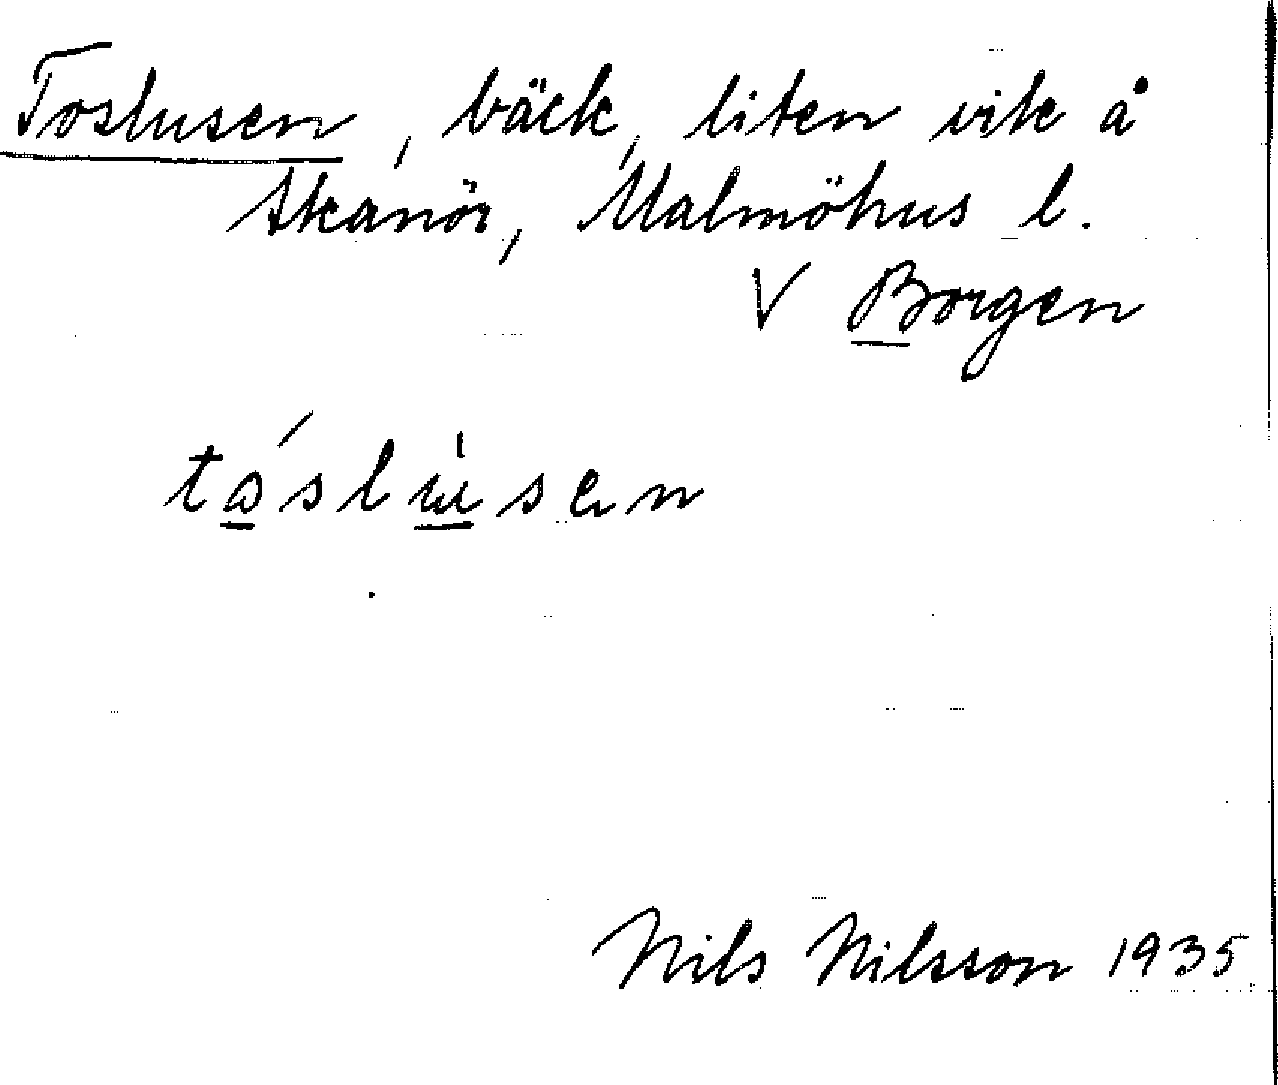 Toslusen, bäck, liten vik å
Skanör, Malmöhus l.
V Borgen
tós lùsen
Nils Nilsson 1935